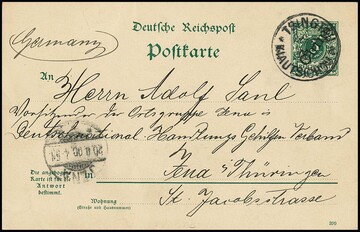 Deutsche Reichspost
Postkarte
(Germany)
TSINGTAU
KIAUTSCHOU
An
Herrn Adolf Saul
Vorsitzender der Ortsgruppe Jena
Deutschnational Handlungs Gehilfen Verband
in Jena i/Thüringen
Die angebogene
Karte ist für die
Antwort
bestimmt.
Wohnung
(Straße und Hausnummer)
St. Jacobsstrasse